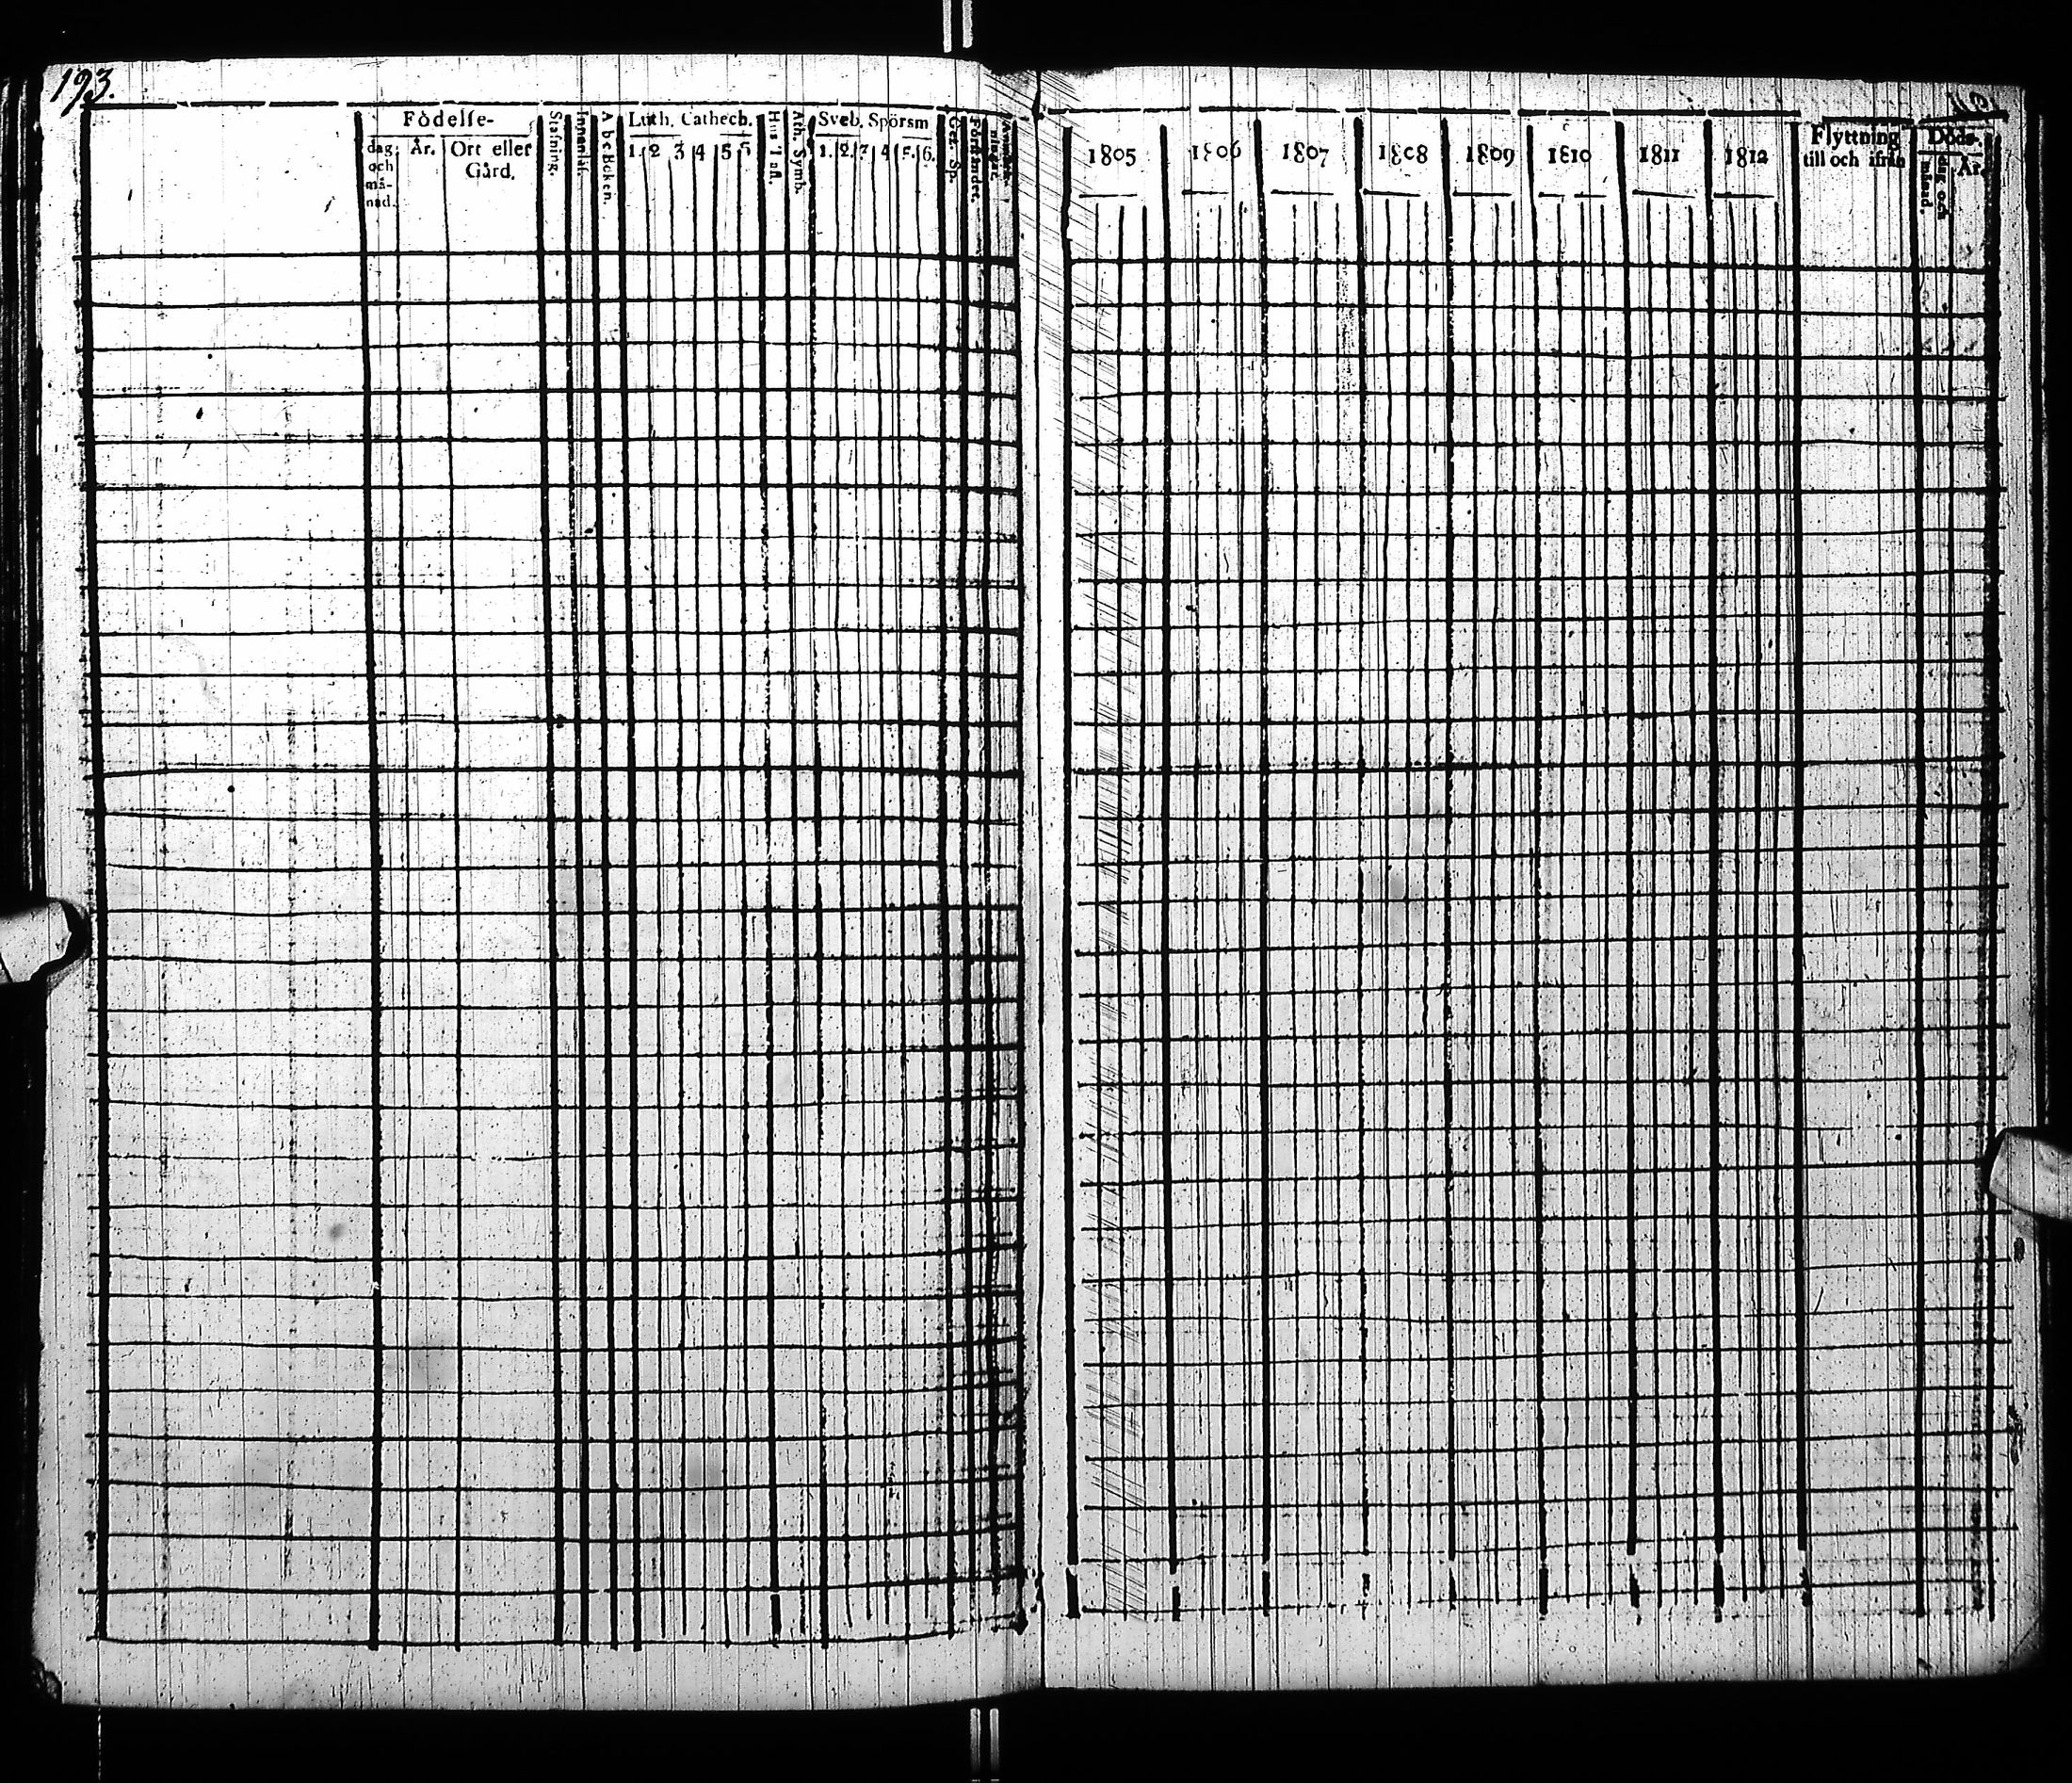 193.
Födelse-
dag och må- nad.
År.
Ort eller Gård.
Stafning.
Innanläs.
A b c Boken.
Luth. Cathech.
1. 2 3 4 5 5
Hus Tafl.
Ath. Symb.
Sveb. Spörsm
1. 2. 3 4 5. 6.
Gez. Sp.
Förständet.
1805 1806 1807 1808 1809 1810 1811 1812
Flyttning
till och ifrån
Döds-
dag och månad.
År.